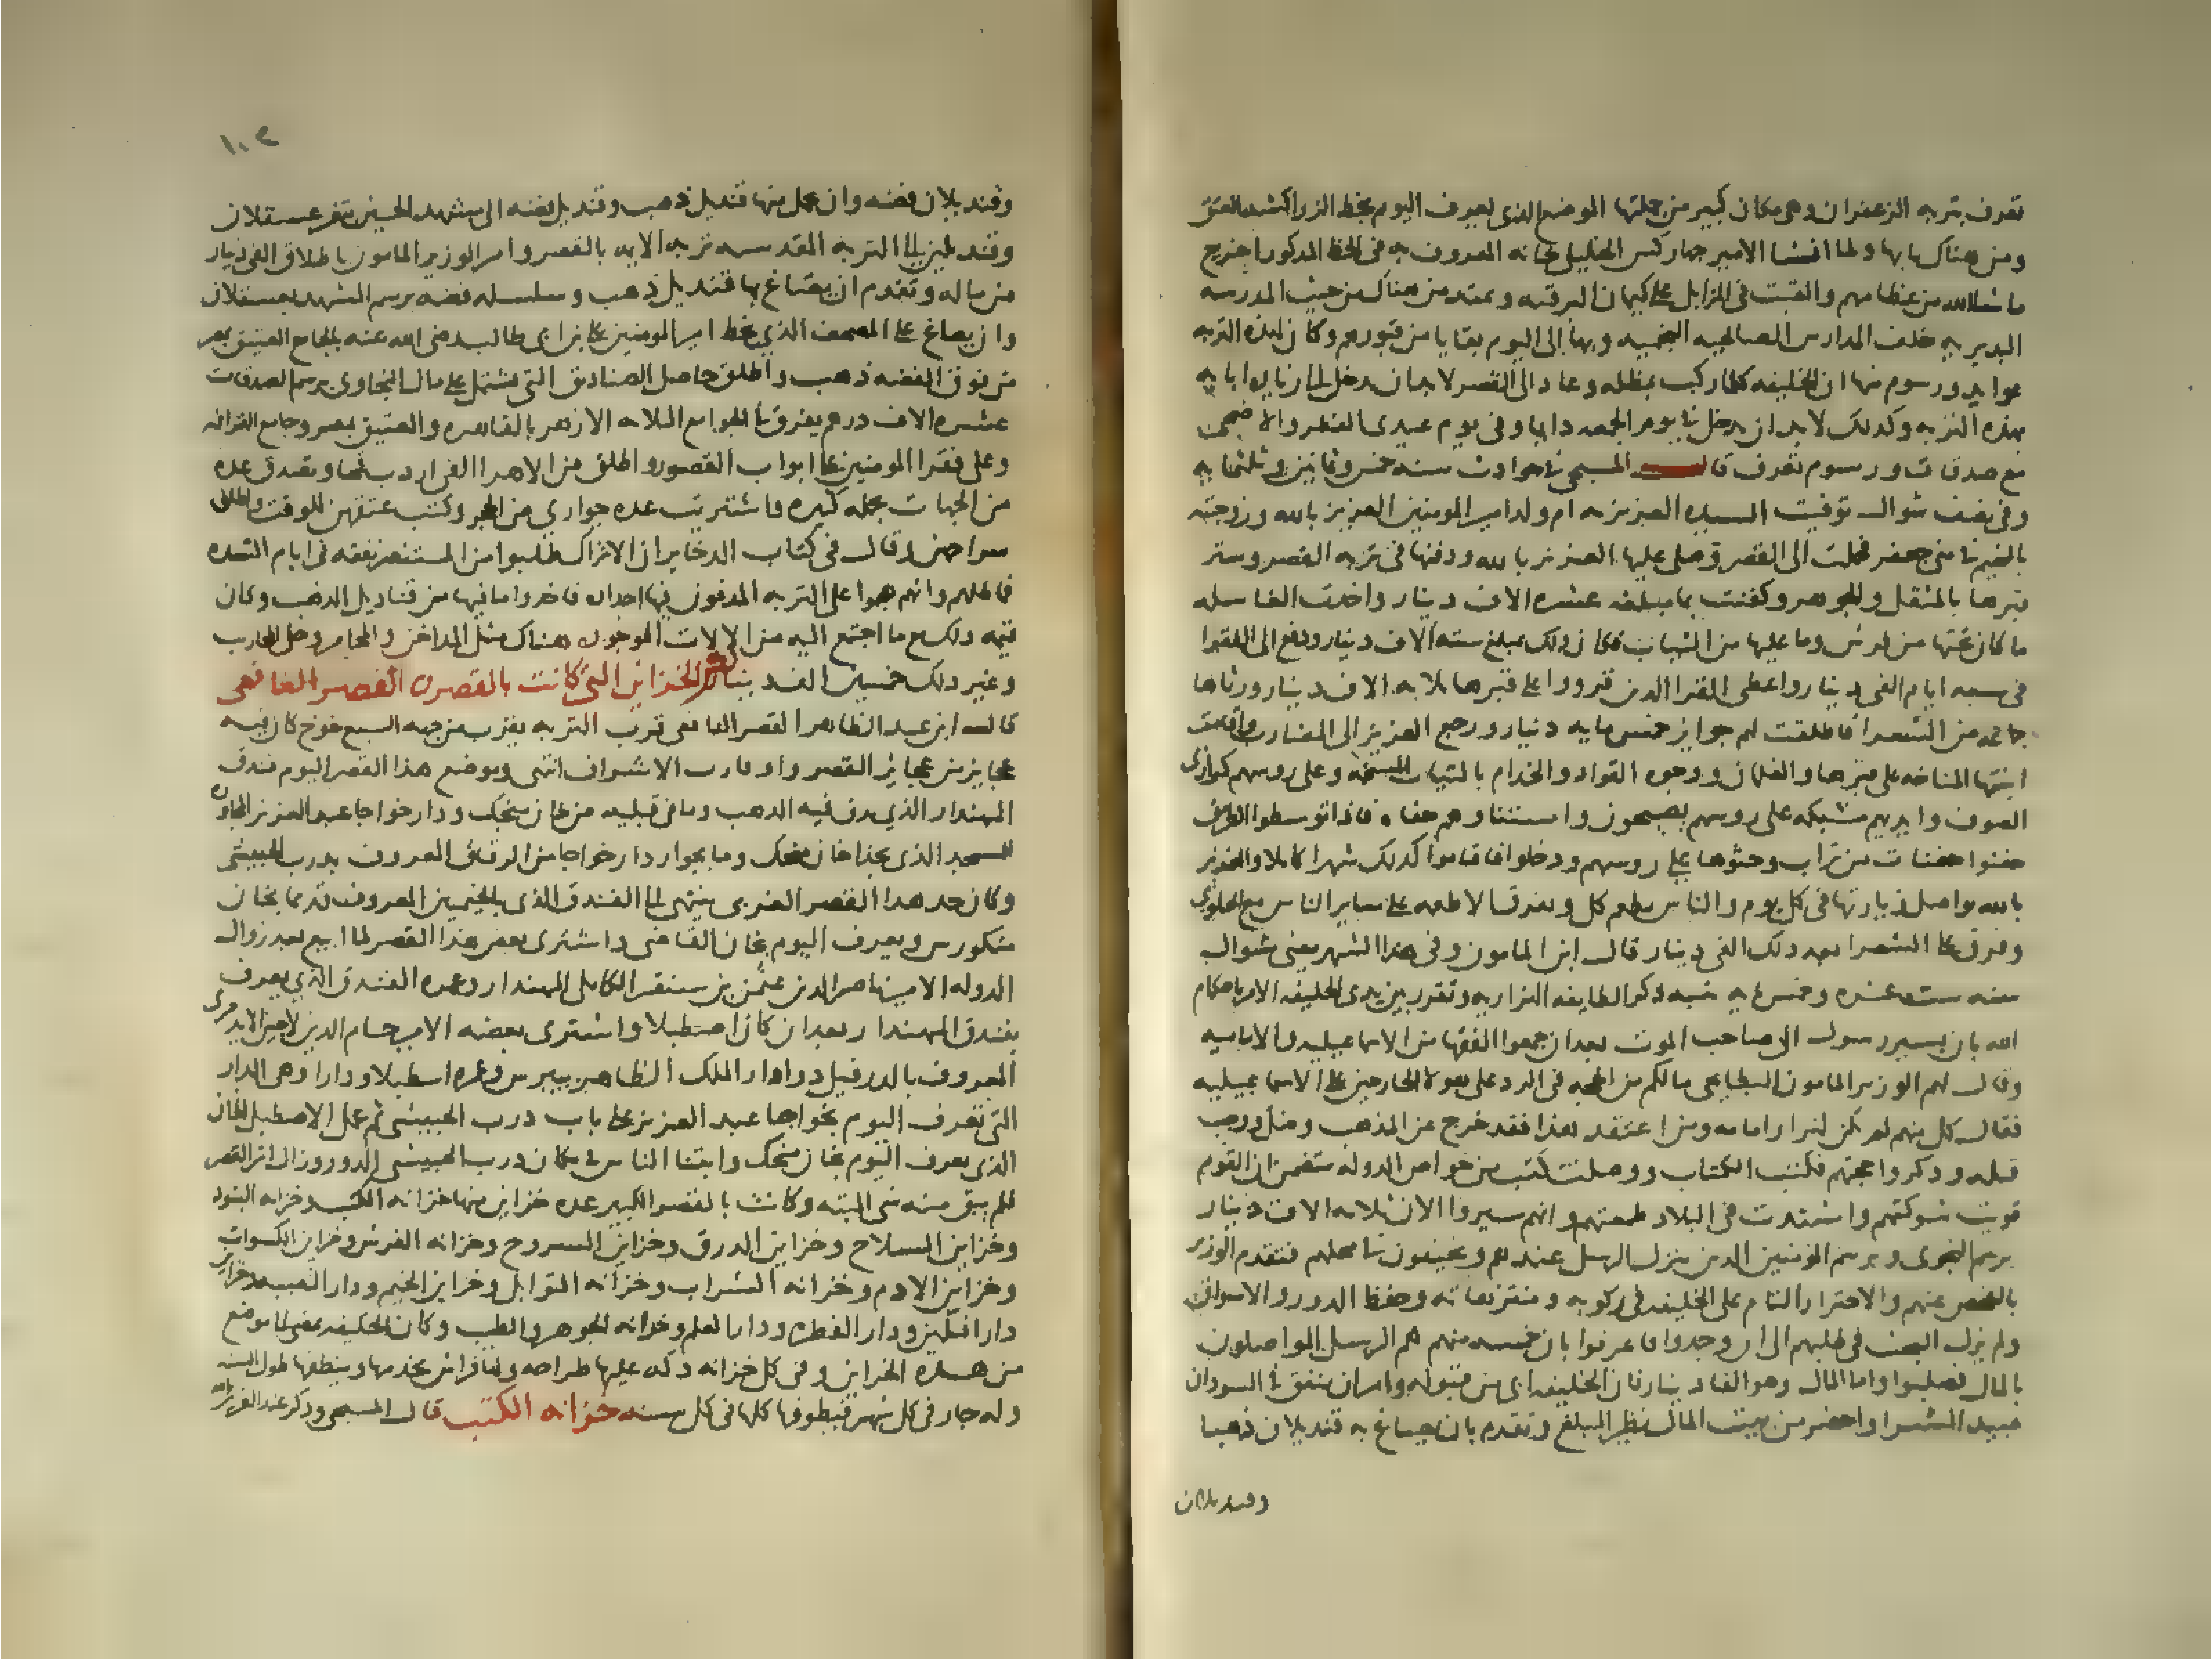 تعرف بتربه الزعفران وهي مكان كبير من جملتها الموضع الذي يعرف اليوم بخط الزراكشه العتيق
ومن هناك بابها ولما انشا الامير جهاركس الخليلي خانه المعروف به في الخط المذكور اخرج
ما شا الله من عظامهم والقيت في المزابل على كيمان البرقيه ويمتد من هناك من حيث المدرسه
البديريه خلف المدارس الصالحيه النجميه وبها الى اليوم بقايا من قبورهم وكان لهذه التربه
عوايد ورسوم منها ان الخليفه كلما ركب بمظله وعاد الى القصر لا بد ان يدخل الى زياره ابايه
بهذه التربه وكذلك لا بد ان يدخل في يوم الجمعه دايما وفي يوم عيدي الفطر والاضحى
مع صدقات ورسوم تفرق قال المسبحي في حوادث سنه خمس وثمانين وثلثمايه
وفي نصف شوال توفيت السيده العزيزيه ام ولد امير المومنين العزيز بالله وزوجته
بالخيم في منى جعفر فحملت الى القصر وصلى عليها العزيز بالله ودفنها في تربه القصر وستر
قبرها بالمثقل والجوهر وكفنت بما مبلغه عشره الاف دينار واخذت الغاسله
ما كان تحتها من فرش وما عليها من الثياب فكان ذلك مبلغ سته الاف دينار ودفع الى الفقرا
في سبعه ايام الفي دينار واعطى القرا الذين قرووا على قبرها ثلاثه الاف دينار ورثاها
جماعه من الشعرا فاطلقت لهم جوايز خمس مايه دينار ورجع العزيز الى المضارب واقامت
ابنتها المناحه على قبرها والغلمان ووجوه القواد والخدام بالثياب المسخمه وعلى روسهم كرازي
الصوف وايديهم مشبكه على روسهم يصيحون واستنا وهم حفاه فاذا توسطوا الطريق
حفنوا حفنات من تراب وحثوها على روسهم ودخلوا فاقاموا كذلك شهرا كاملا والعزيز
بالله يواصل زيارتها في كل يوم والناس يطعم كل وتفرق الاطعمه على ساير الناس مع الحلوى
وفرق على الشعرا بعد ذلك الفي دينار قال ابن المامون وفي هذا الشهر يعني شوال
سنه ست عشره وخمس مايه نبه ذكر الطايفه النزاريه وتقرر بين يدي الخليفه الامر باحكام
الله بان يسير رسول الى صاحب الموت بعد ان جمعوا الفقها من الاسماعيليه والاماميه
وقال لهم الوزير المامون البطايحي مالكم من الحجه في الرد على هولا الخارجين على الاسماعيليه
فقال كل منهم لم يكن لنزار امامه ومن اعتقد هذا فقد خرج عن المذهب وضل ووجب
قتله وذكروا حجتهم فكتب الكتاب ووصلت كتب من خواص الدوله تتضمن ان القوم
قويت شوكتهم واشتدت في البلاد طمعتهم وانهم سيروا الان ثلاثه الاف دينار
برسم النجوى وبرسم المومنين الذين ينزل الرسل عندهم ويختفون في محلهم فتقدم الوزير
بالفحص عنهم والاحتراز التام على الخليفه في ركوبه ومتنزهاته وحفظ الدور والاسواق
ولم يزل البحث في طلبهم الى ان وجدوا فاعترفوا بان خمسه منهم هم الرسل الواصلون
بالمال فصلبوا واما المال وهو الفا دينار فان الخليفه ابى من قبوله وامر ان ينفق في السودان
عبيد الشرا واحضر من بيت المال نظير المبلغ وتقدم بان يصاغ به قنديلان ذهبا
وقنديلان
١٠٢
وقنديلان فضه وان يحمل منها قنديل ذهب وقنديل فضه الى مشهد الحسين بثغر عسقلان
وقنديلين الى التربه المقدسه تربه الايمه بالقصر وامر الوزير المامون باطلاق الفي دينار
من ماله وتقدم ان يصاغ بها قنديل ذهب وسلسله فضه برسم المشهد بعسقلان
وان يصاغ على المصحف الذي بخط امير المومنين علي بن ابي طالب رضي الله عنه بالجامع العتيق بمصر
من فوق الفضه ذهب واطلق حاصل الصناديق التي تشتمل على مال النجاوى برسم الصدقات
عشره الاف درهم يفرق في الجوامع الثلاثه الازهر بالقاهره والعتيق بمصر وجامع القرافه
وعلى فقرا المومنين على ابواب القصور واطلق من الاهرا الفي اردب قمحا وتصدق عده
من الجهات بجمله كبيره واشتريت عده جواري من الحجر وكتب عتقهن للوقت واطلق
سراحهن وقال في كتاب الدخاير ان الاتراك طلبوا من المستنصر نفقه في ايام الشده
فماطلهم وانهم هجموا على التربه المدفون فيها اجداده فاخذوا ما فيها من قناديل الذهب وكان
قيمه ذلك مع ما اجتمع اليه من الالات الموجوده هناك مثل المداخن والمجامر وحلى المحاريب
وغير ذلك خمسين الف دينار ذكر الخزاين التي كانت بالقصر القصر النافعي
قال ابن عبد الظاهر القصر النافعي قرب التربه يقرب من جهه السبع خوخ كان فيه
عجايز من عجايز القصر واقارب الاشراف انتهى وموضع هذا القصر اليوم فندق
المهمندار الذي يدق فيه الذهب وما في قبليه من خان منجك ودار خواجا عبد العزيز المجاوره
للمسجد الذي بحذا خان منجك وما بجوار دار خواجا من الزقاق المعروف بدرب الحبيشي
وكان حد هذا القصر الغربي ينتهي الى الفندق الذي بالخيميين المعروف قديما بخان
منكورس ويعرف اليوم بخان القاضي واشترى بعض هذا القصر لما ابيع بعد زوال
الدوله الامير ناصر الدين عثمن بن سنقر الكاملي المهمندار وعمره الفندق الذي يعرف
بفندق المهمندار بعد ان كان اصطبلا واشترى بعضه الامير حسام الدين لاجين الايدمري
المعروف بالدرفيل دوادار الملك الظاهر بيبرس وعمره اسطبلا ودارا وهي الدار
التي تعرف اليوم بخواجا عبد العزيز على باب درب الحبيشي ثم عمل الاصطبل الخان
الذي يعرف اليوم بخان منجك وابتنا الناس في مكان درب الحبيشي الدور وزال اثر القصر
فلم يبق منه شي البته وكانت بالقصر الكبير عده خزاين منها خزانه الكتب وخزانه البنود
وخزاين السلاح وخزاين الدرق وخزاين السروج وخزانه الفرش وخزاين الكسوات
وخزاين الادم وخزانه الشراب وخزانه التوابل وخزاين الخيم ودار التعبيه وخزاين
دار افتكين ودار الفطره ودار العلم وخزانه الجوهر والطيب وكان الخليفه يمضي الى موضع
من هذه الخزاين وفي كل خزانه دكه عليها طراحه ولها فراش يخدمها وينظفها طول السنه
وله جار في كل شهر فيطوفها كلها في كل سنه خزانه الكتب قال المسبحي وذكر عند العزيز بالله